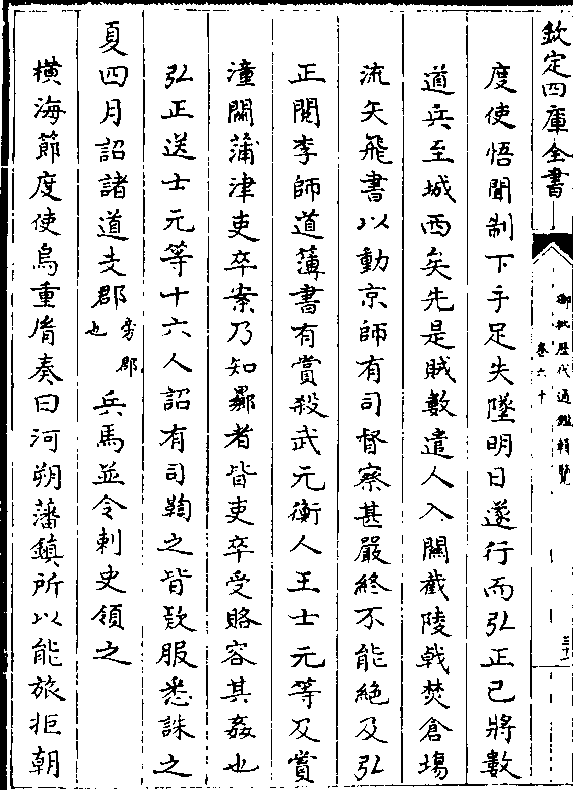 欽定四庫全書
御批歴代通鑑輯覽
卷六十
三十
度使悟聞制下手足失墜明日遂行而弘正已將數
道兵至城西矣先是賊數遣人入關截陵㦸焚倉塲
流矢飛書以動京師有司督察甚嚴終不能絶及弘
正閲李師道薄書有賞殺武元衡人王士元等及賞
潼關蒲津吏卒案乃知曏者皆吏卒受賂容其姦也
弘正送士元等十六人詔有司鞫之皆欵服悉誅之
夏四月詔諸道支郡旁郡也兵馬並令刺史領之
横海節度使烏重𦙍奏曰河朔藩鎮所以能旅拒朝